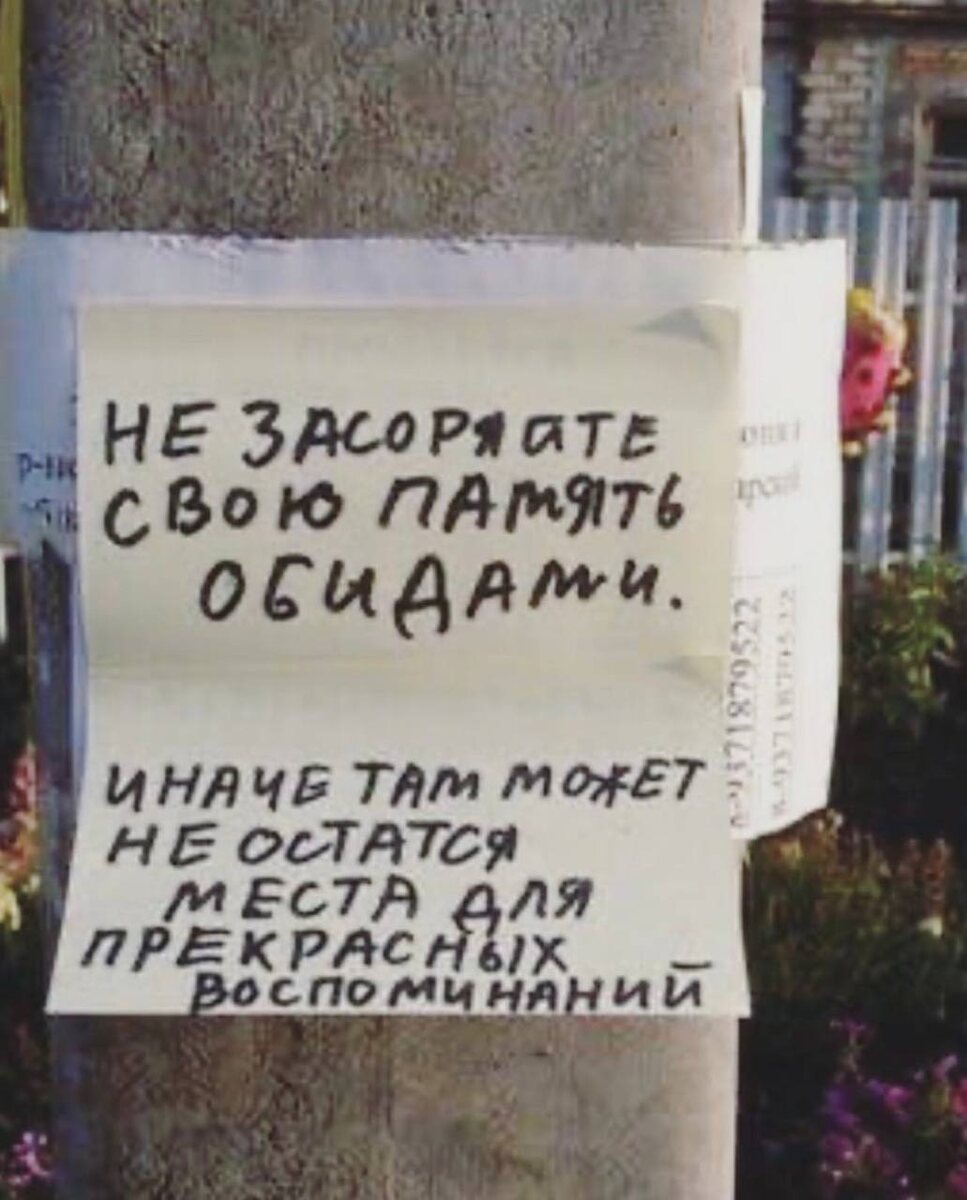 НЕ ЗАСОРЯЙТЕ
СВОЮ ПАМЯТЬ
ОБИДАМИ.
ИНАЧЕ ТАМ МОЖЕТ
НЕ ОСТАТСЯ
МЕСТА ДЛЯ
ПРЕКРАСНЫХ
ВОСПОМИНАНИЙ